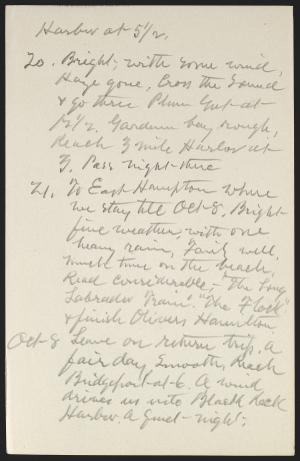 Harbor at 5 1/2.
20. Bright, with some wind,
Haze gone, Cross the Sound
& go thro Plum Gut at
12 1/2. Gardiners bay, rough,
Reach 3 mile Harbor at
3, Pass night there
21. To East Hampton where
we stay till Oct-8, Bright
fine weather, with one
heavy rain, Fairly well,
much time on the beach,
Read considerable,- "The Long
Labrador Train". "The Flock"
& finish Olivers Hamilton.
Oct-8 Leave on return trip, A
fair day, Smooth, Reach
Bridgeport-at-6. A wind
drives us into Black Rock
Harbor. A quiet-night;